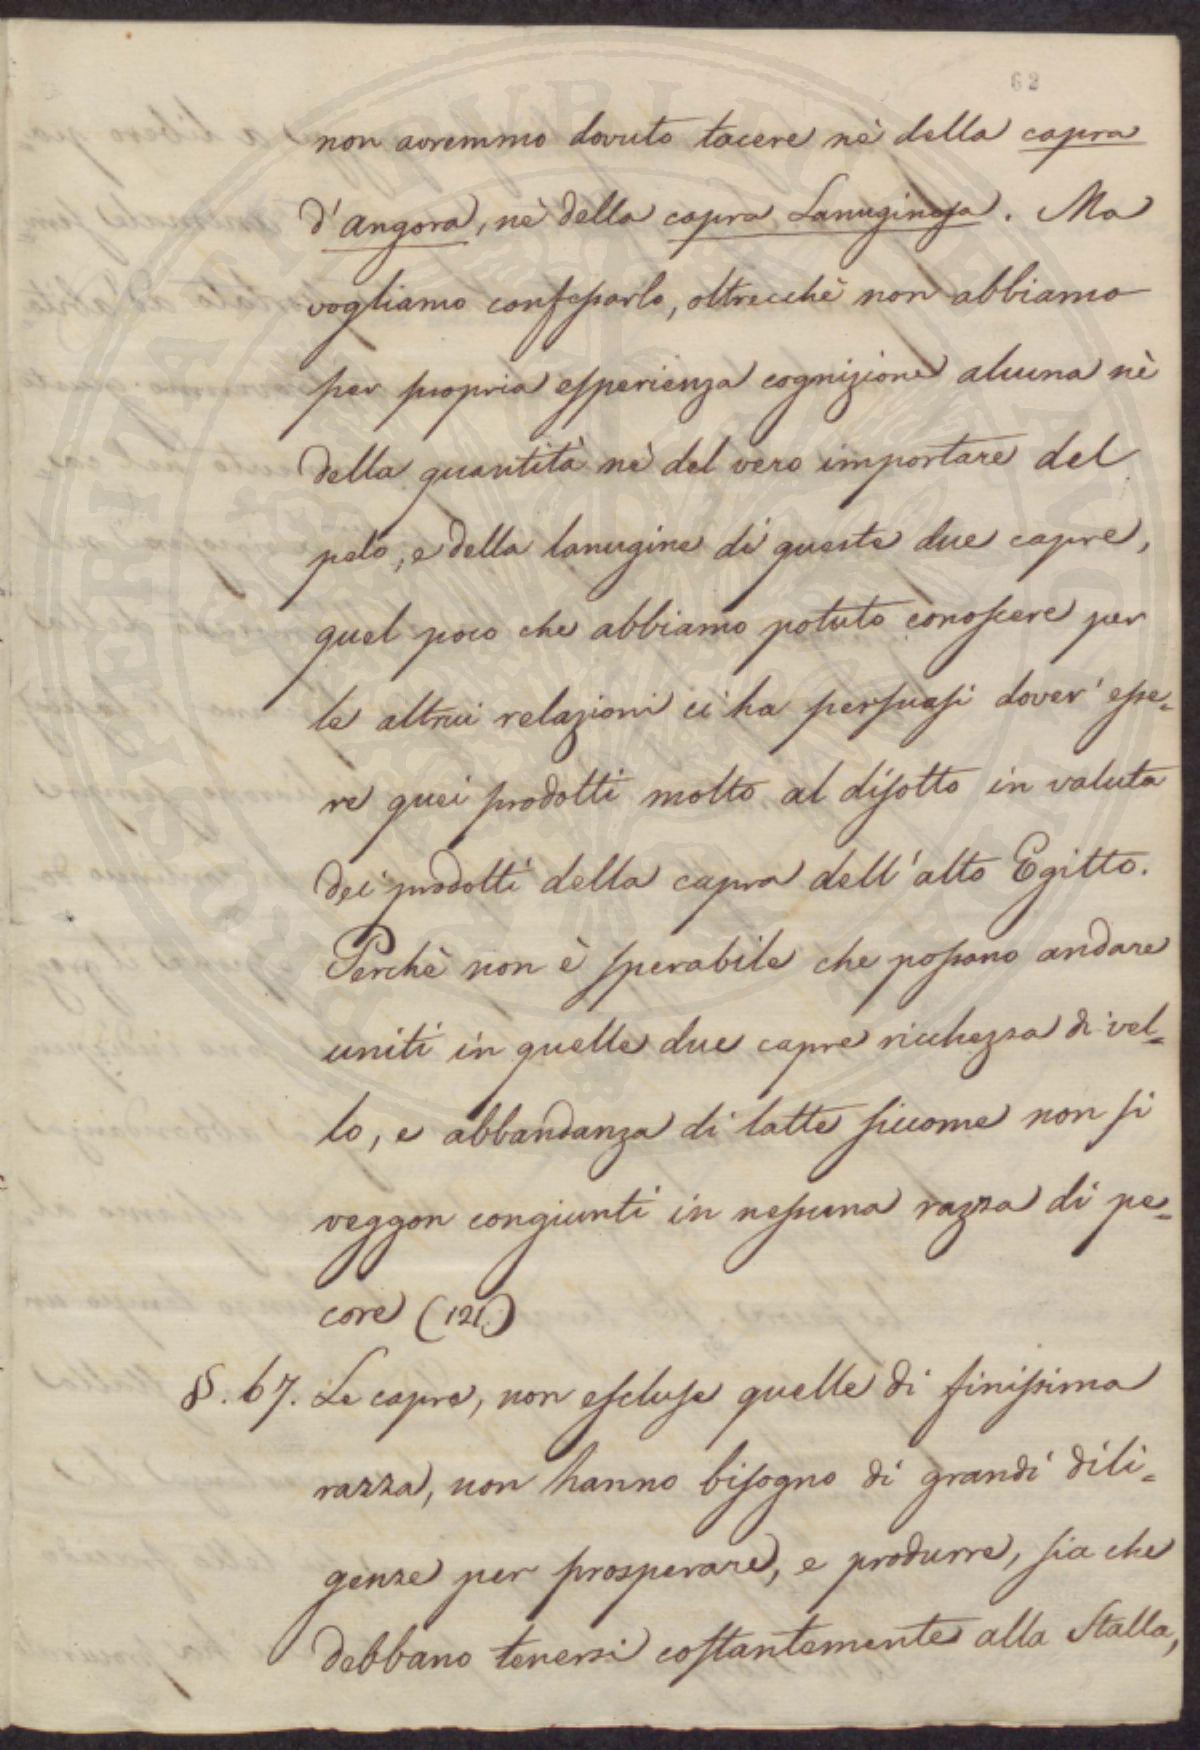 62
non avremmo dovuto tacere nè della capra
d'angora, nè della capra Lanuginosa. Ma
vogliamo confessarlo, oltrecchè non abbiamo
per propria esperienza cognizione alcuna nè
della quantità nè del vero importare del
pelo, e della lanugine di queste due capre,
quel poco che abbiamo potuto conoscere per
le altrui relazioni ci ha persuasi dover' esse=
re quei prodotti molto al disotto in valuta
dei prodotti della capra dell'alto Egitto.
Perchè non è sperabile che possano andare
uniti in quelle due capre ricchezza di vel=
lo, e abbandanza di latte siccome non si
veggon congiunti in nessuna razza di pe=
core (121.)
§. 67. Le capre, non escluse quelle di finissima
razza, non hanno bisogno di grandi dili=
genze per prosperare, e produrre, sia che
debbano tenersi costantemente alla Stalla,